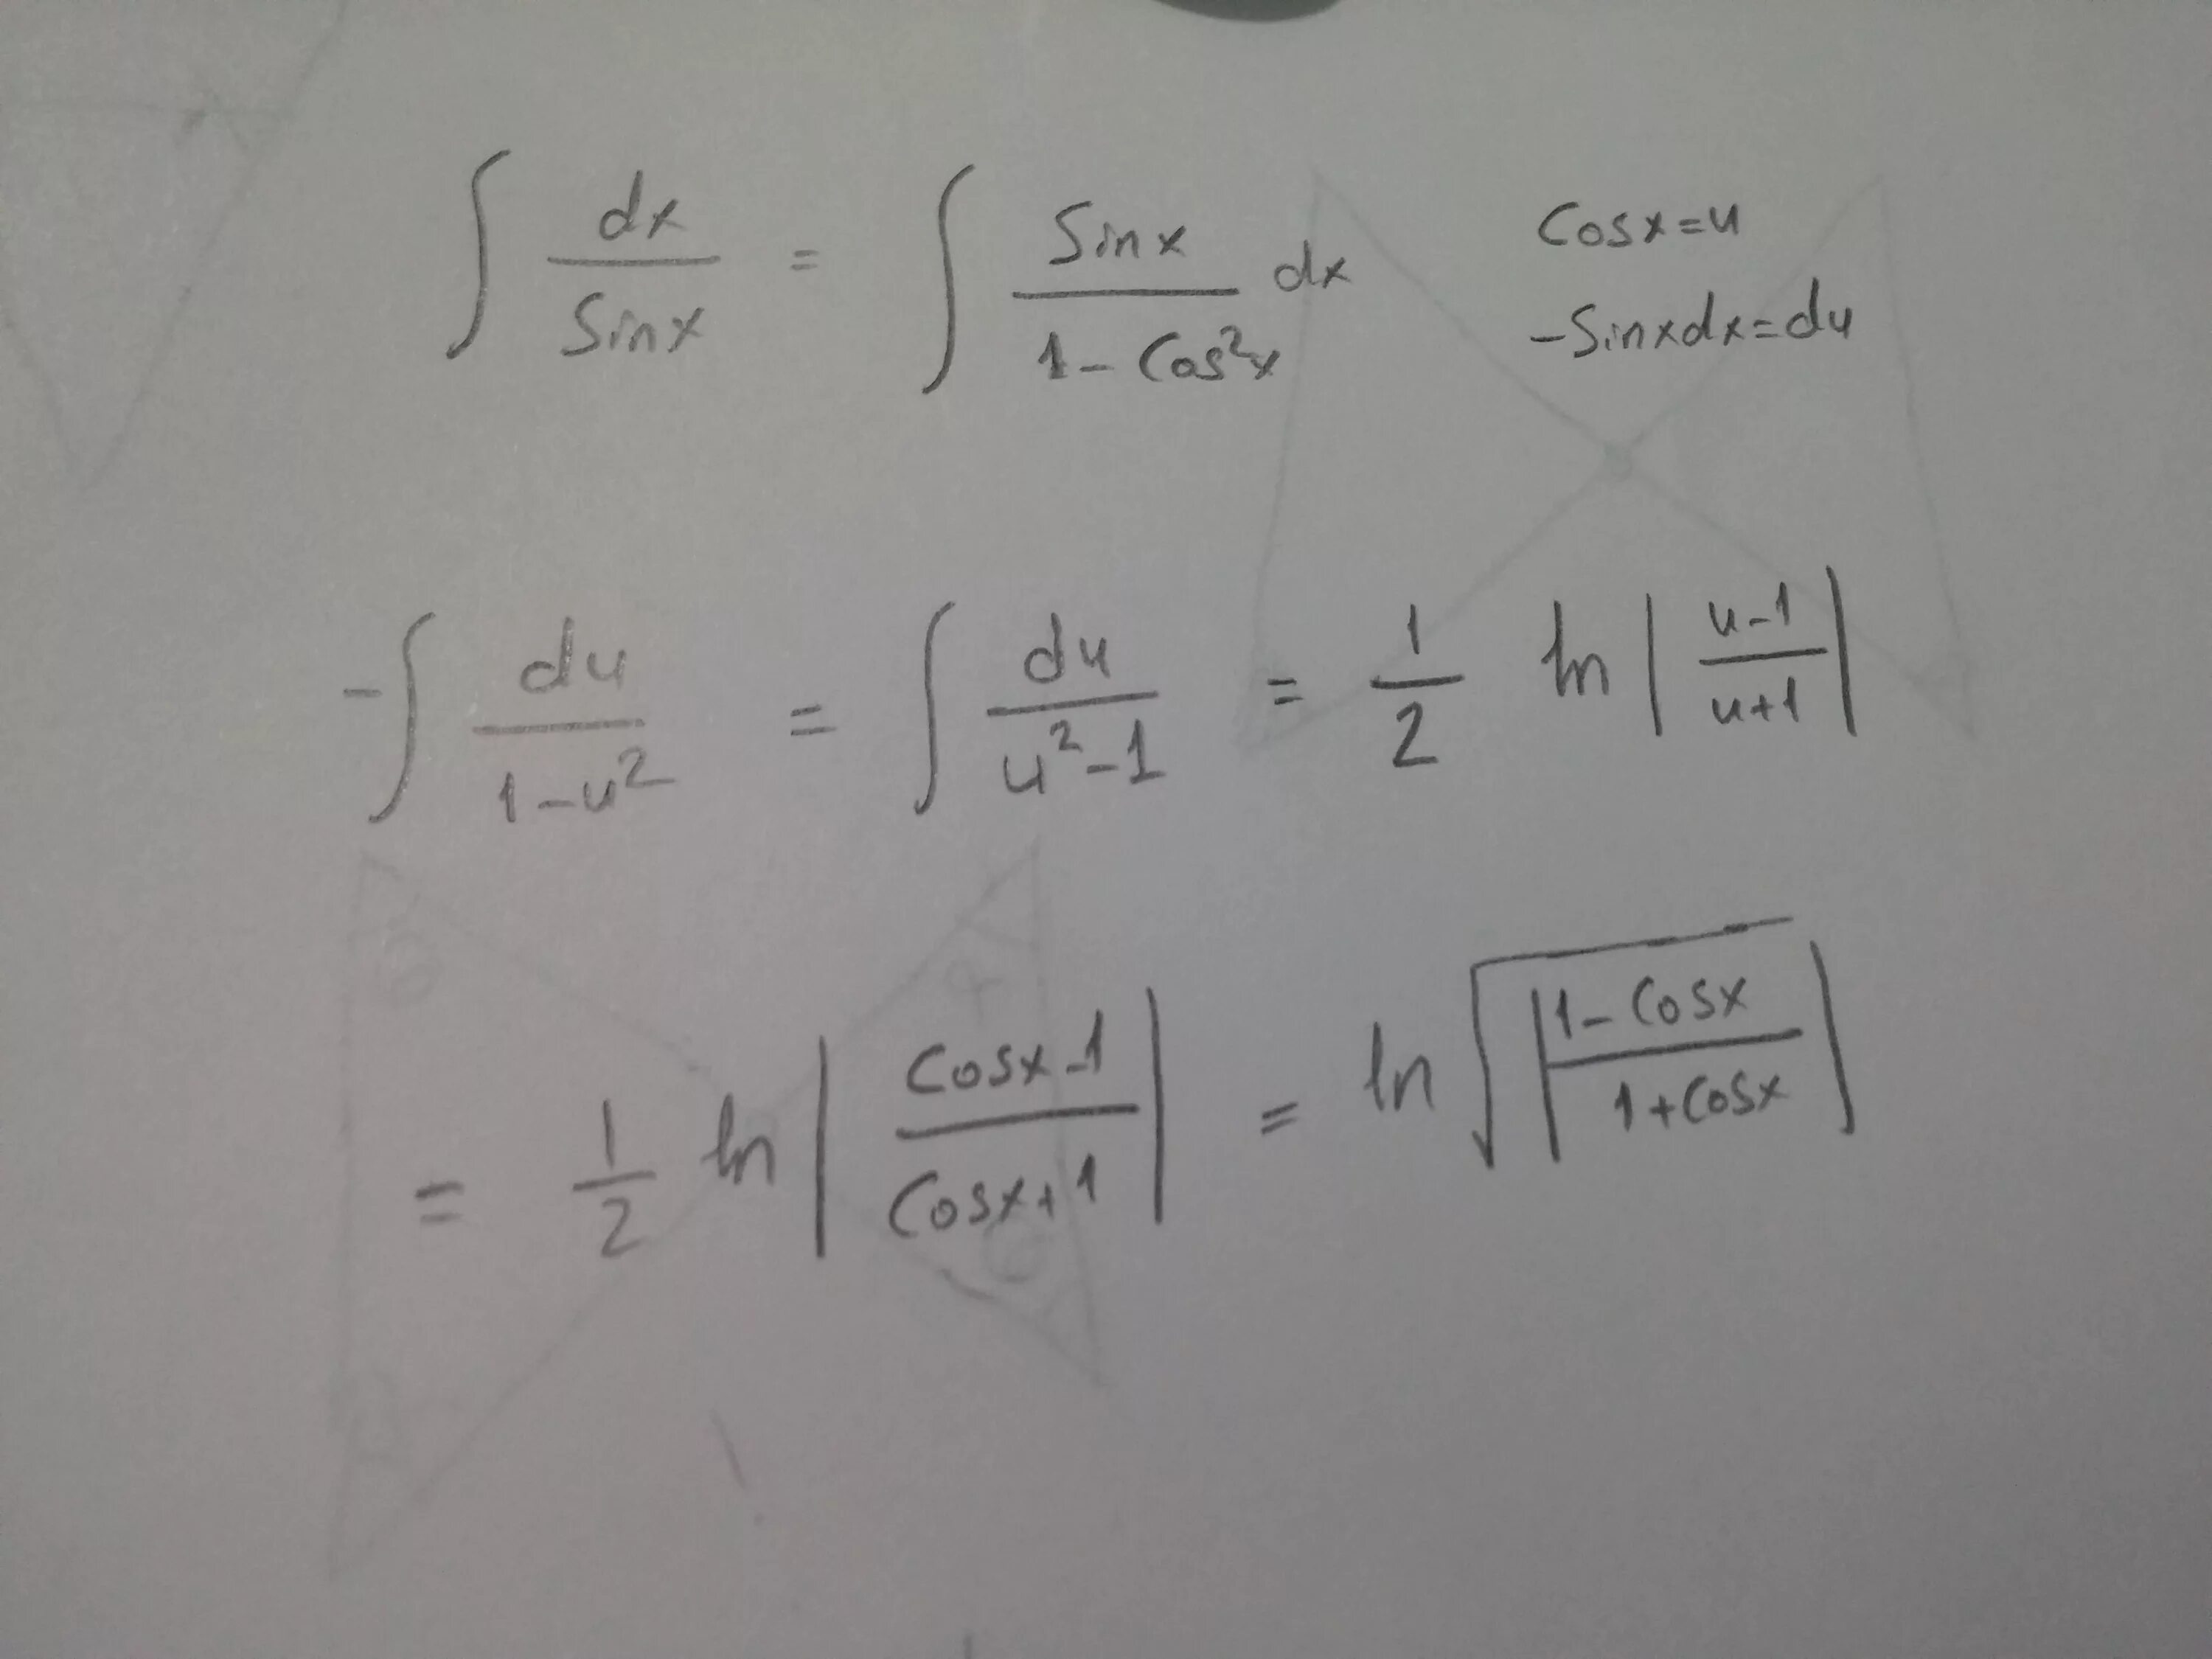 ∫ dx/Sinx = ∫ Sinx/(1-Cos²x) dx   Cosx=u
-Sinxdx=du
-∫ du/(1-u²) = ∫ du/(u²-1) = 1/2 ln |(u-1)/(u+1)|
= 1/2 ln |(Cosx-1)/(Cosx+1)| = ln √|(1-Cosx)/(1+Cosx)|